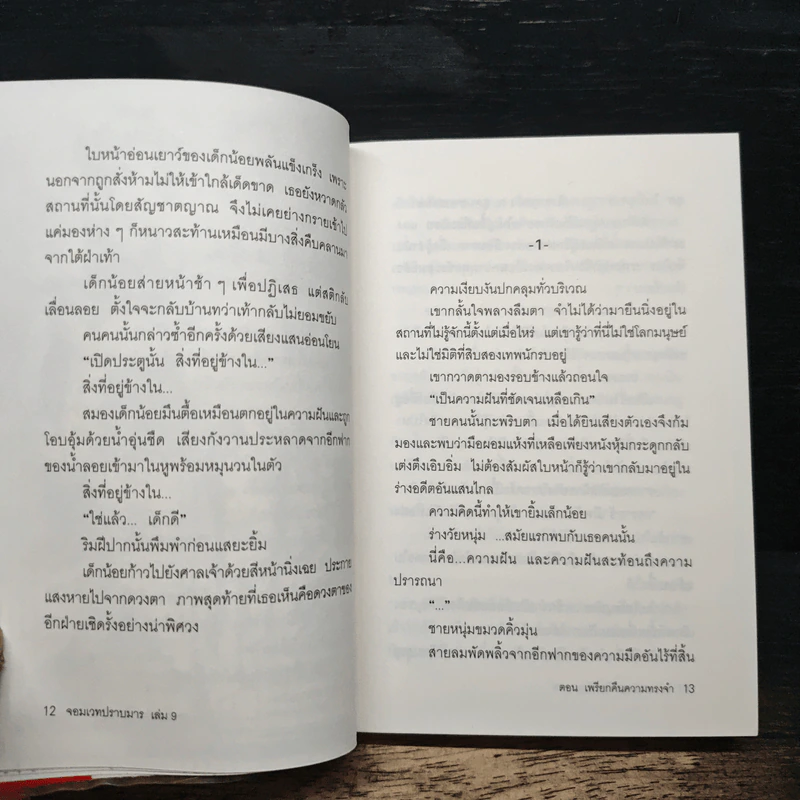 ใบหน้าอ่อนเยาว์ของเด็กน้อยพลันแข็งเกร็ง เพราะ
นอกจากถูกสั่งห้ามไม่ให้เข้าใกล้เด็ดขาด เธอยังหวาดกลัว
สถานที่นั้นโดยสัญชาตญาณ จึงไม่เคยย่างกรายเข้าไป
แค่มองห่าง ๆ ก็หนาวสะท้านเหมือนมีบางสิ่งคืบคลานมา
จากใต้ฝ่าเท้า
เด็กน้อยส่ายหน้าช้า ๆ เพื่อปฏิเสธ แต่สติกลับ
เลื่อนลอย ตั้งใจจะกลับบ้านทว่าเท้ากลับไม่ยอมขยับ
คนคนนั้นกล่าวซ้ำอีกครั้งด้วยเสียงแสนอ่อนโยน
“เปิดประตูนั้น สิ่งที่อยู่ข้างใน...”
สิ่งที่อยู่ข้างใน...
สมองเด็กน้อยมึนตื้อเหมือนตกอยู่ในความฝันและถูก
โอบอุ้มด้วยน้ำอุ่นชืด เสียงกังวานประหลาดจากอีกฟาก
ของน้ำลอยเข้ามาในหูพร้อมหมุนวนในตัว
สิ่งที่อยู่ข้างใน...
“ใช่แล้ว... เด็กดี”
ริมฝีปากนั้นพึมพำก่อนแสยะยิ้ม
เด็กน้อยก้าวไปยังศาลเจ้าด้วยสีหน้านิ่งเฉย ประกาย
แสงหายไปจากดวงตา ภาพสุดท้ายที่เธอเห็นคือดวงตาของ
อีกฝ่ายเชิดรั้งอย่างน่าพิศวง
12 จอมเวทปราบมาร เล่ม 9
-1-
ความเงียบงันปกคลุมทั่วบริเวณ
เขากลั้นใจพลางลืมตา จำไม่ได้ว่ามายืนนิ่งอยู่ใน
สถานที่ไม่รู้จักนี้ตั้งแต่เมื่อไหร่ แต่เขารู้ว่าที่นี่ไม่ใช่โลกมนุษย์
และไม่ใช่มิติที่สิบสองเทพนักรบอยู่
เขากวาดตามองรอบข้างแล้วถอนใจ
“เป็นความฝันที่ชัดเจนเหลือเกิน”
ชายคนนั้นกะพริบตา เมื่อได้ยินเสียงตัวเองจึงก้ม
มองและพบว่ามือผอมแห้งที่เหลือเพียงหนังหุ้มกระดูกกลับ
เต่งตึงเอิบอิ่ม ไม่ต้องสัมผัสใบหน้าก็รู้ว่าเขากลับมาอยู่ใน
ร่างอดีตอันแสนไกล
ความคิดนี้ทำให้เขายิ้มเล็กน้อย
ร่างวัยหนุ่ม ...สมัยแรกพบกับเธอคนนั้น
นี่คือ...ความฝัน และความฝันสะท้อนถึงความ
ปรารถนา
“...”
ชายหนุ่มขมวดคิ้วมุ่น
สายลมพัดพลิ้วจากอีกฟากของความมืดอันไร้ที่สิ้น
ตอน เพรียกคืนความทรงจำ 13